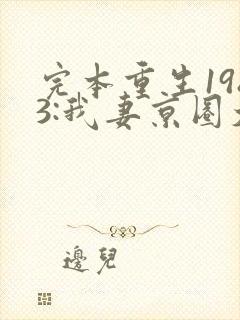 完本重生19
3:我妻京圈
邊兒